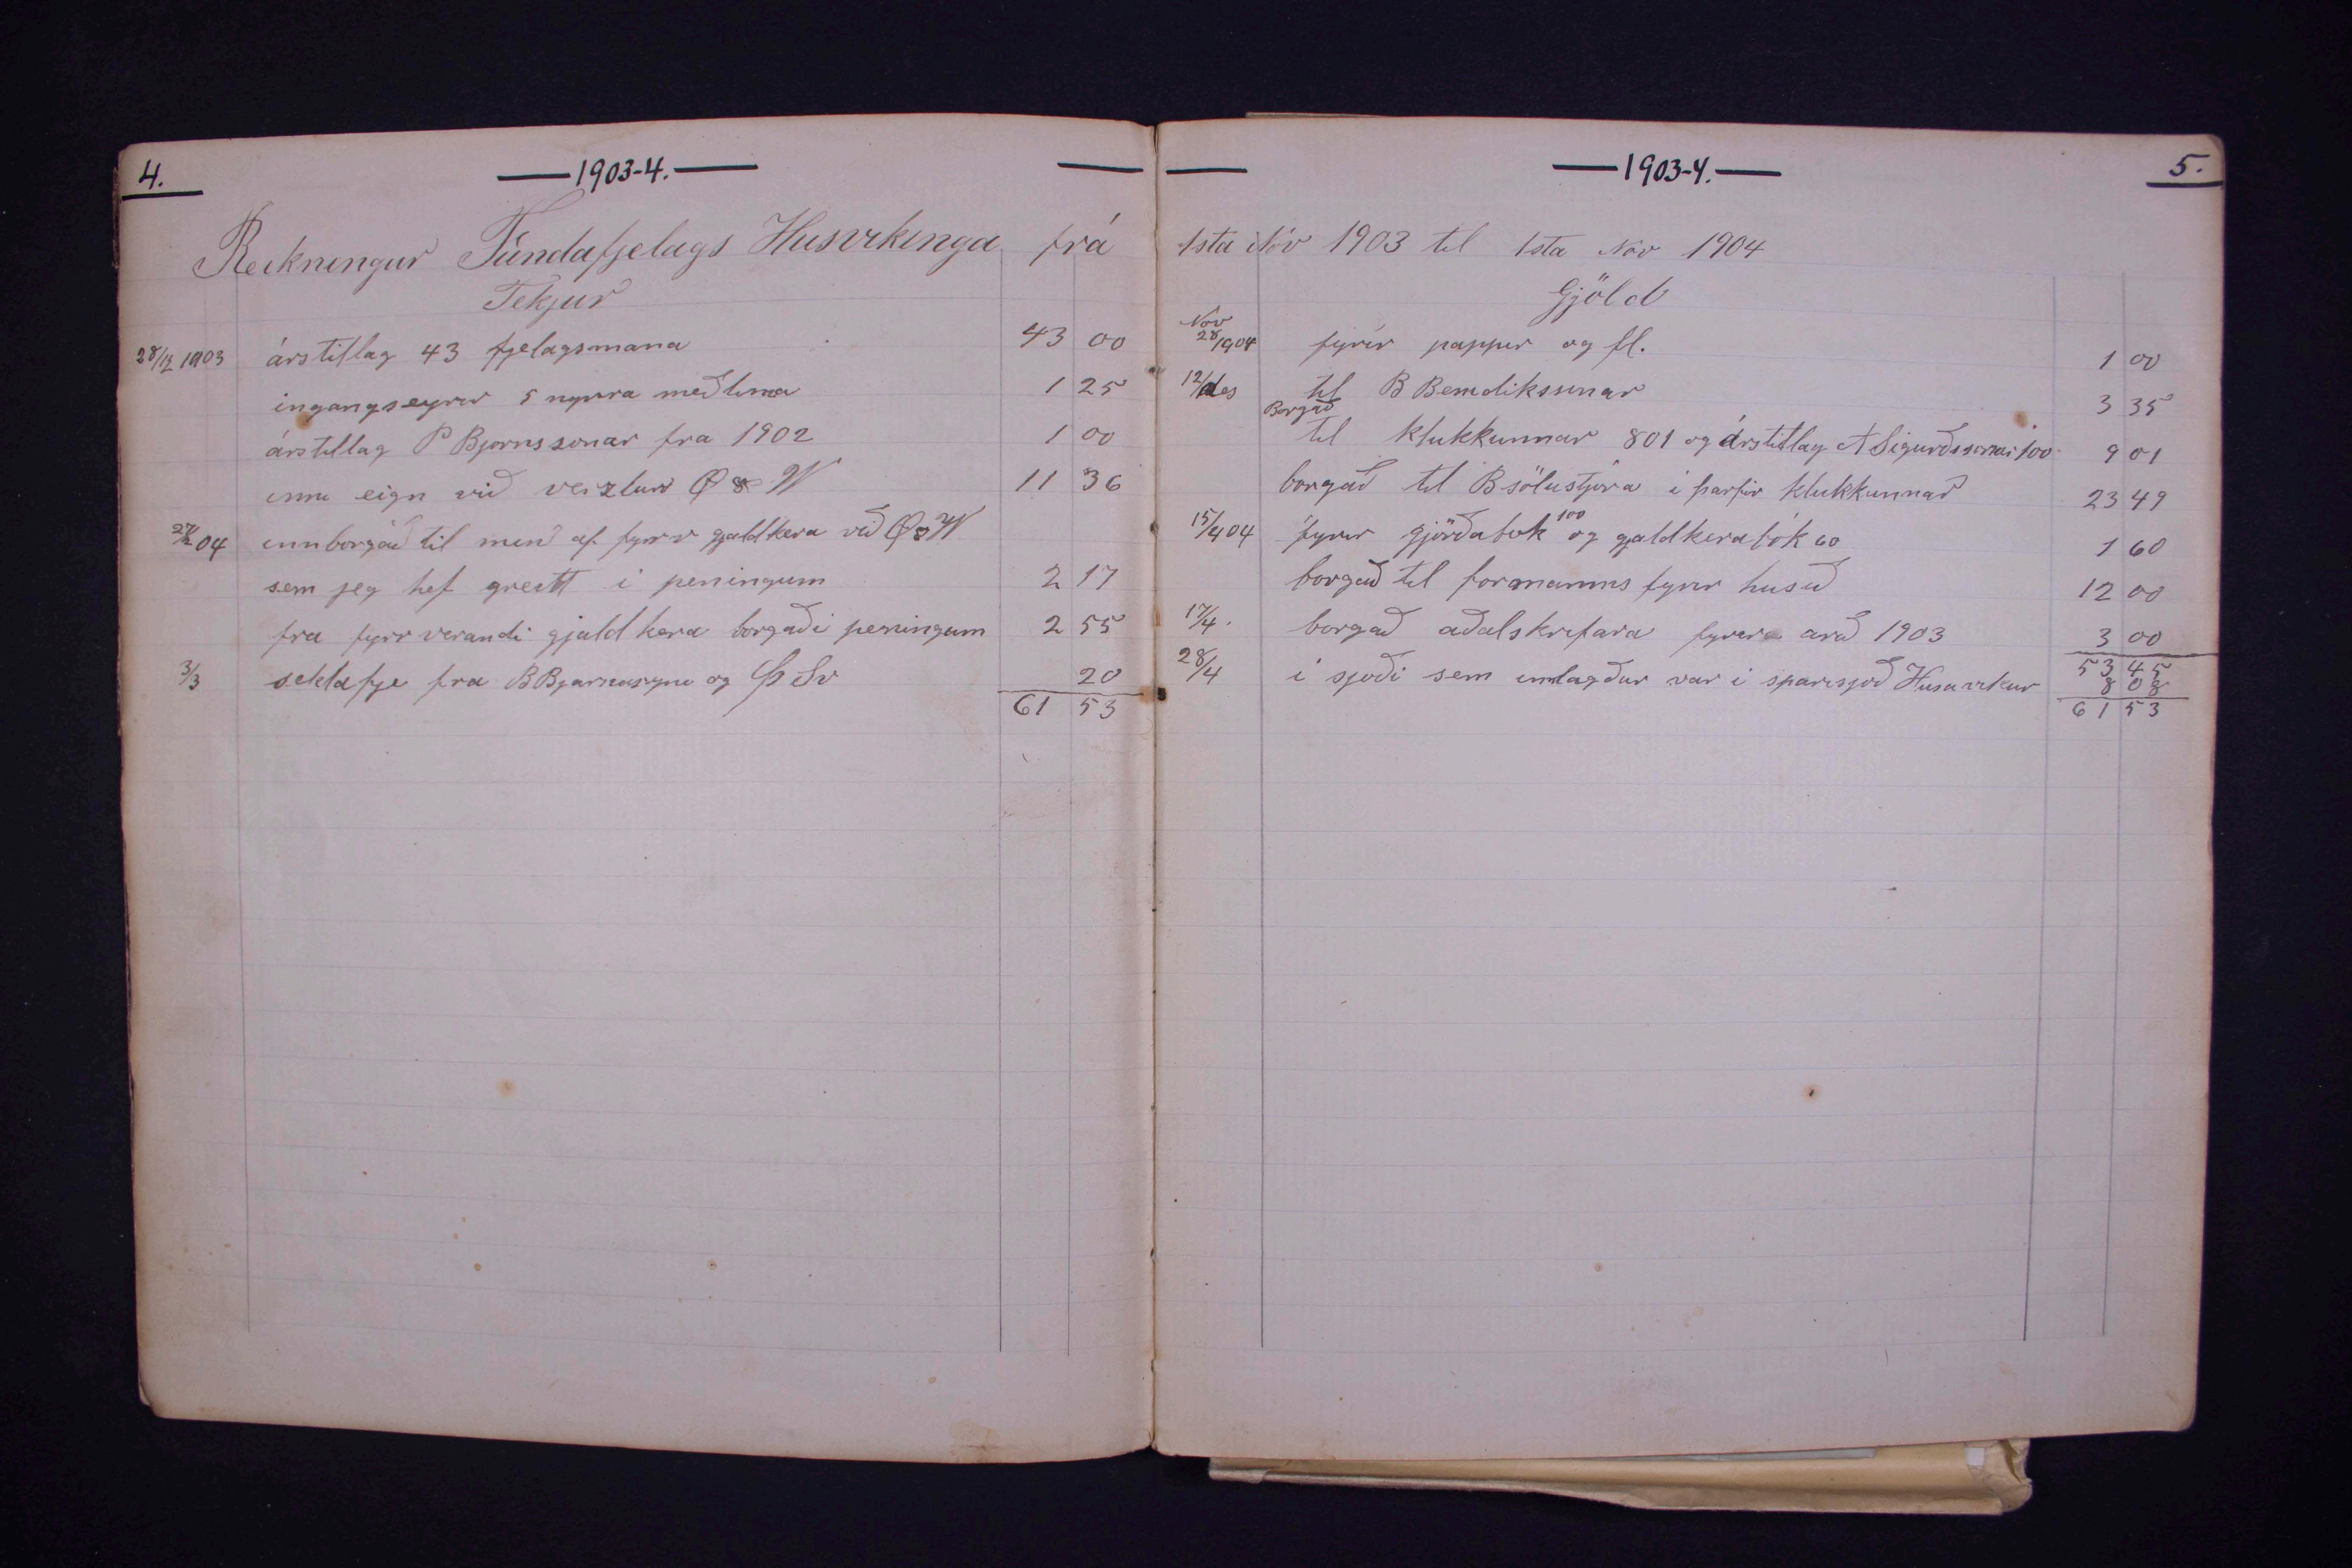 4.
1903-4.
Reikningur Fúndafjelags Husvikinga frá
Tekjur
28/12 1903 árstillag 43 fjelagsmana 43 00
ingangseyrir 5 nyrra meðlima 1 25
árstillag P Bjornssonar fra 1902 1 00
inni eign við verzlun Ø & W 11 36
27/2 04 innborgað til min af fyrrv gjaldkera við Ø & W
sem jeg hef greitt i peningum 2 17
fra fyrrverandi gjaldkera borgað i peningum 2 55
3/3 sektafje fra B Bjarnasyni og Þ Sv 20
61 53
1903-4.
5.
1sta Nóv 1903 til 1sta Nóv 1904
Gjöld
Nov
28/1904 fyrir pappir og fl. 1 00
12/des til B Benidikssonar 3 35
Borgað til klukkunnar 801 og árstillag A Sigurðssonar 100 9 01
borgað til B sölustjóra i þarfir klukkunnar 23 49
15/4 04 fyrir gjörðabok 100 og gjaldkerabók 60 1 60
borgað til formanns fyrir husið 12 00
17/4. borgað aðalskrifara fyrir arið 1903 3 00
53 45
28/4 i sjoði sem innlagður var i sparisjoð Husavikur 8 08
61 53